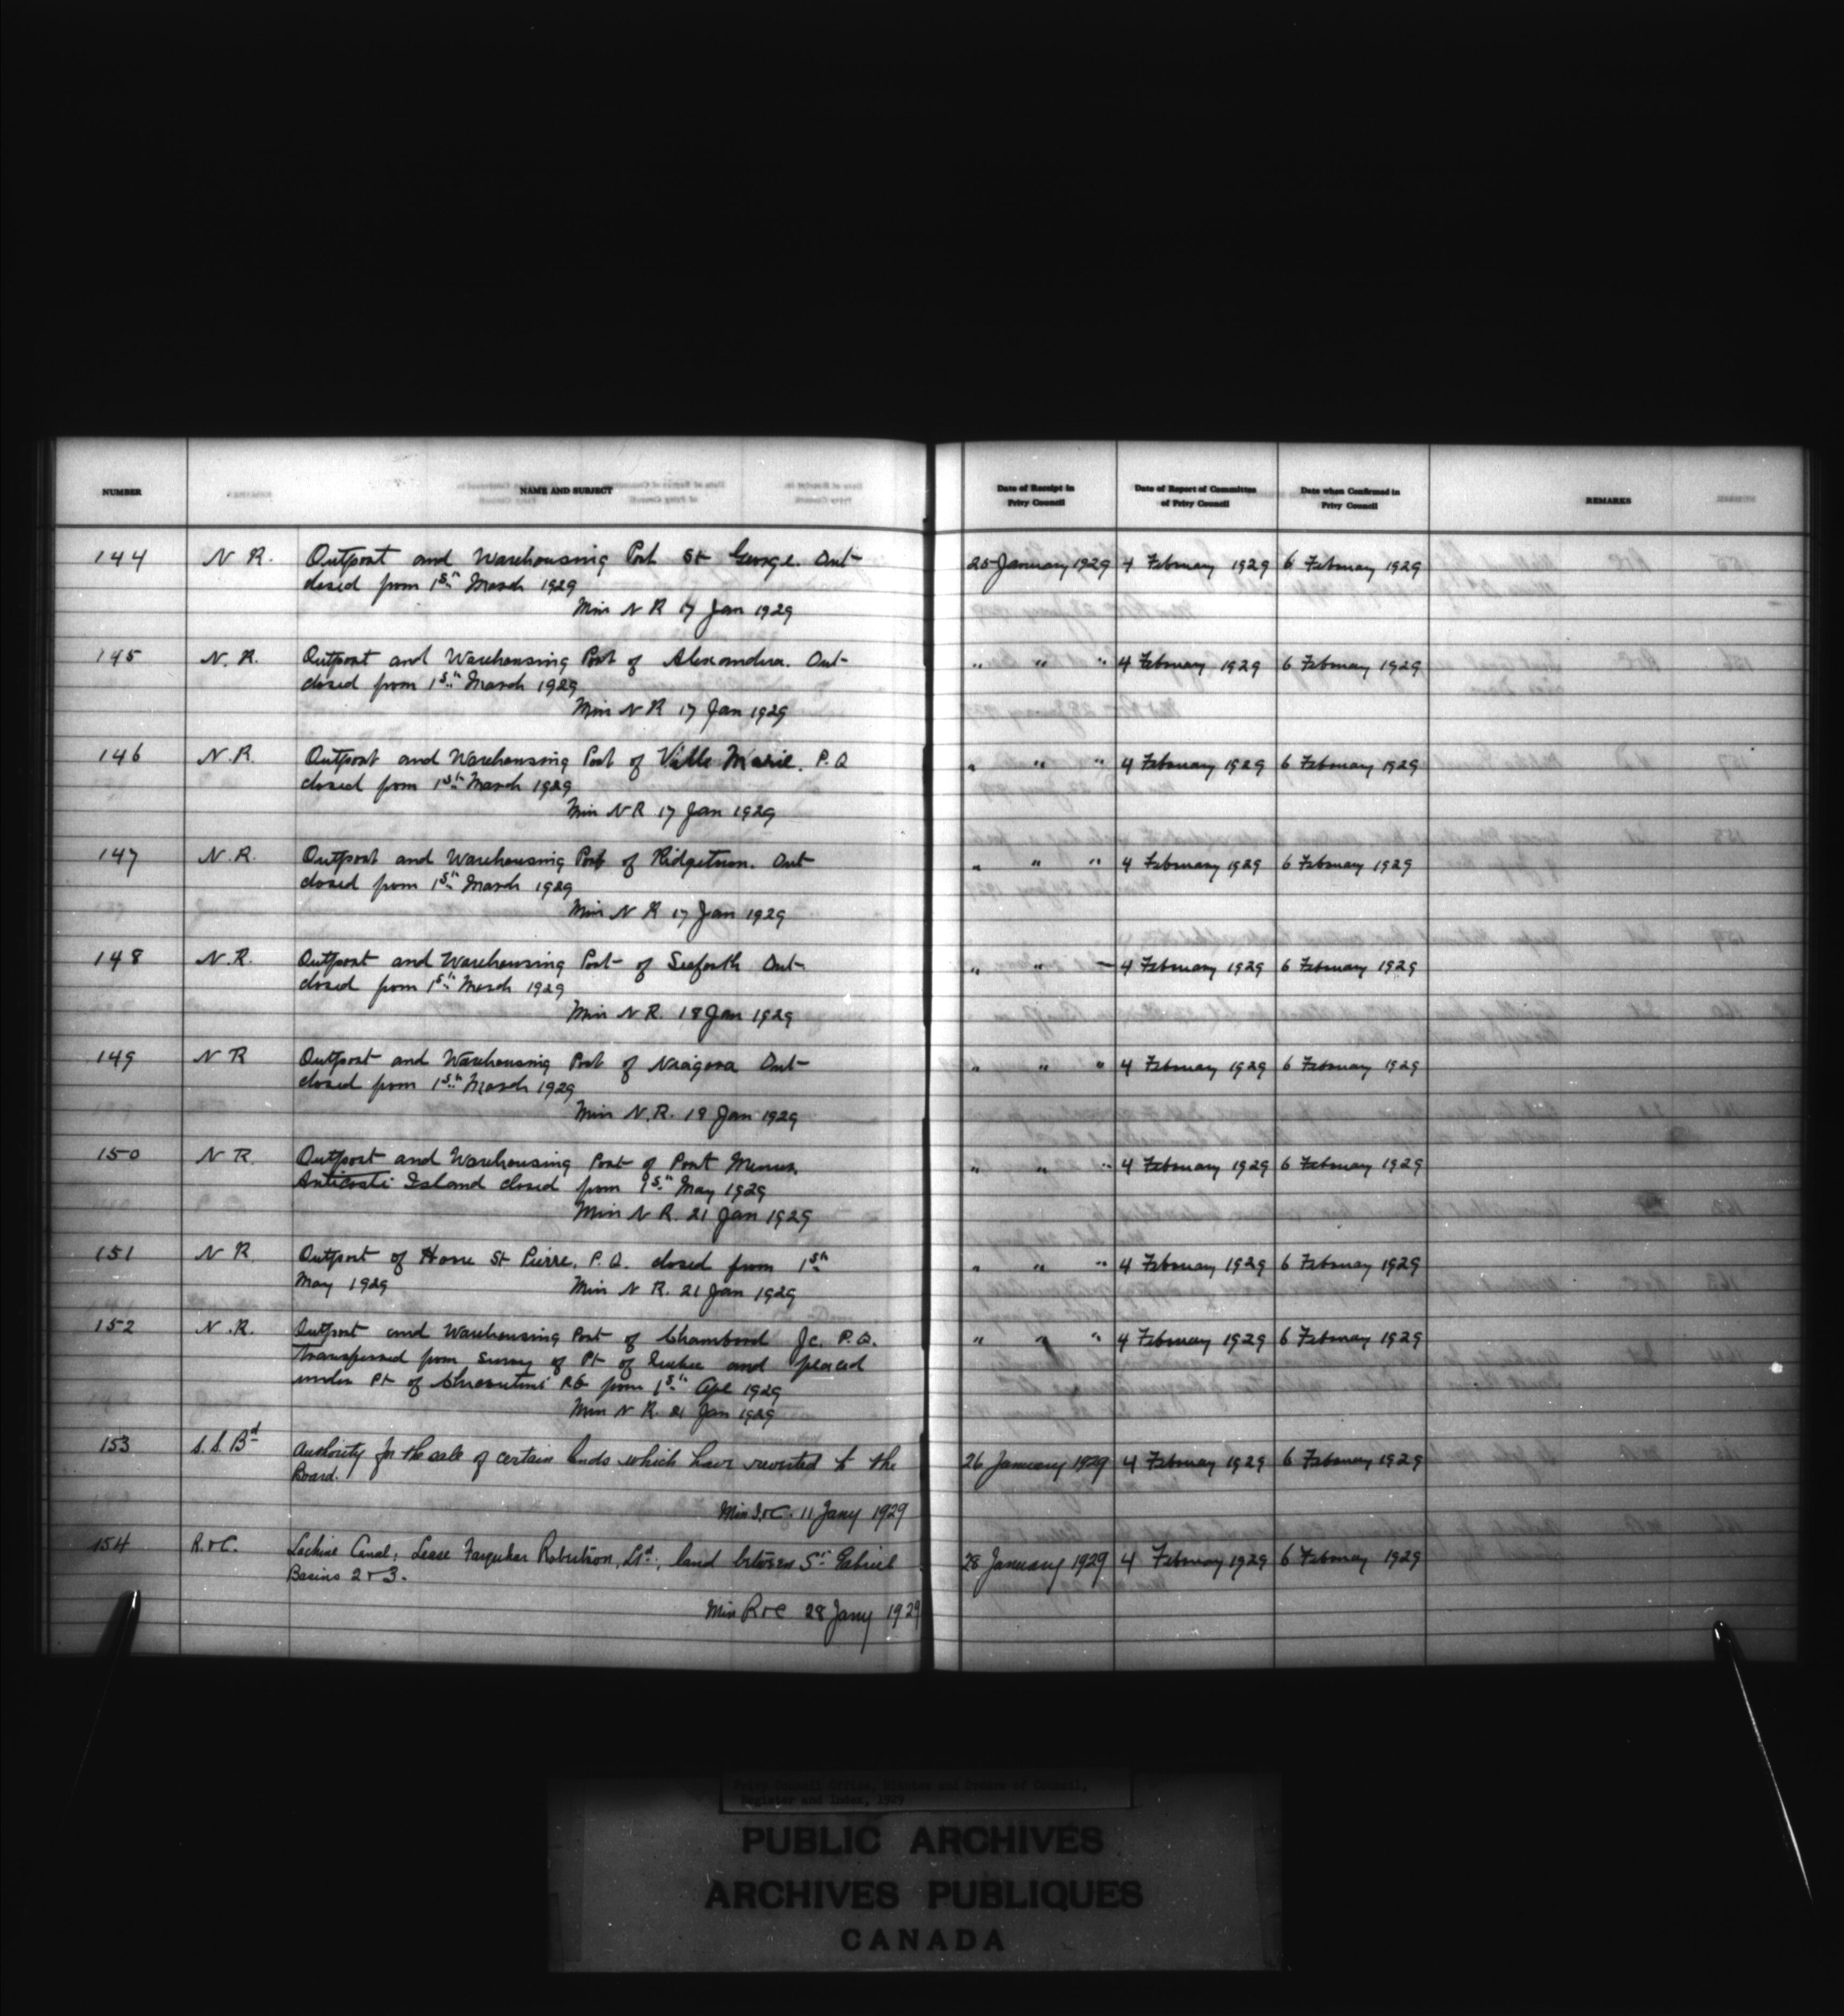 NUMBER NAME AND SUBJECT Date of Receipt in Privy Council Date of Report of Committee of Privy Council Date when Confirmed in Privy Council REMARKS
144 N R. Outport and Warehousing Port St George. Ont 25 January 1929 4 February 1929 6 February 1929
closed from 1st March 1929
Min N R 17 Jan 1929
145 N. R. Outport and Warehousing Port of Alexandria. Ont " " " 4 February 1929 6 February 1929
closed from 1st March 1929
Min N R 17 Jan 1929
146 N.R. Outport and Warehousing Port of Ville Marie. P.Q " " " 4 February 1929 6 February 1929
closed from 1st March 1929
Min N R 17 Jan 1929
147 N.R. Outport and Warehousing Port of Ridgetown. Ont " " " 4 February 1929 6 February 1929
closed from 1st March 1929
Min N R 17 Jan 1929
148 N.R. Outport and Warehousing Port of Seaforth Ont " " " 4 February 1929 6 February 1929
closed from 1st March 1929
Min N R. 18 Jan 1929
149 N R Outport and Warehousing Port of Niagara Ont " " " 4 February 1929 6 February 1929
closed from 1st March 1929
Min N.R. 18 Jan 1929
150 N R. Outport and Warehousing Port of Port Menier " " " 4 February 1929 6 February 1929
Anticosti Island closed from 1st May 1929
Min N R. 21 Jan 1929
151 N R Outport of Havre St Pierre, P.Q. closed from 1st " " " 4 February 1929 6 February 1929
May 1929 Min N R. 21 Jan 1929
152 N.R. Outport and Warehousing Port of Chambord Jc. P.Q. " " " 4 February 1929 6 February 1929
transferred from survey of Pt of Quebec and placed
under Pt of Chicoutimi from 1st Apl 1929
Min N R. 21 Jan 1929
153 S.S. Bd Authority for the sale of certain lands which have reverted to the 26 January 1929 4 February 1929 6 February 1929
Board.
Min I.&C. 11 Jany 1929
154 R.&C. Lachine Canal; Lease Farquhar Robertson, Ltd., land between St Gabriel 28 January 1929 4 February 1929 6 February 1929
Basins 2 & 3.
Min R&C 28 Jany 1929
Privy Council Office, Minutes and Orders of Council,
Register and Index, 1929
PUBLIC ARCHIVES
ARCHIVES PUBLIQUES
CANADA